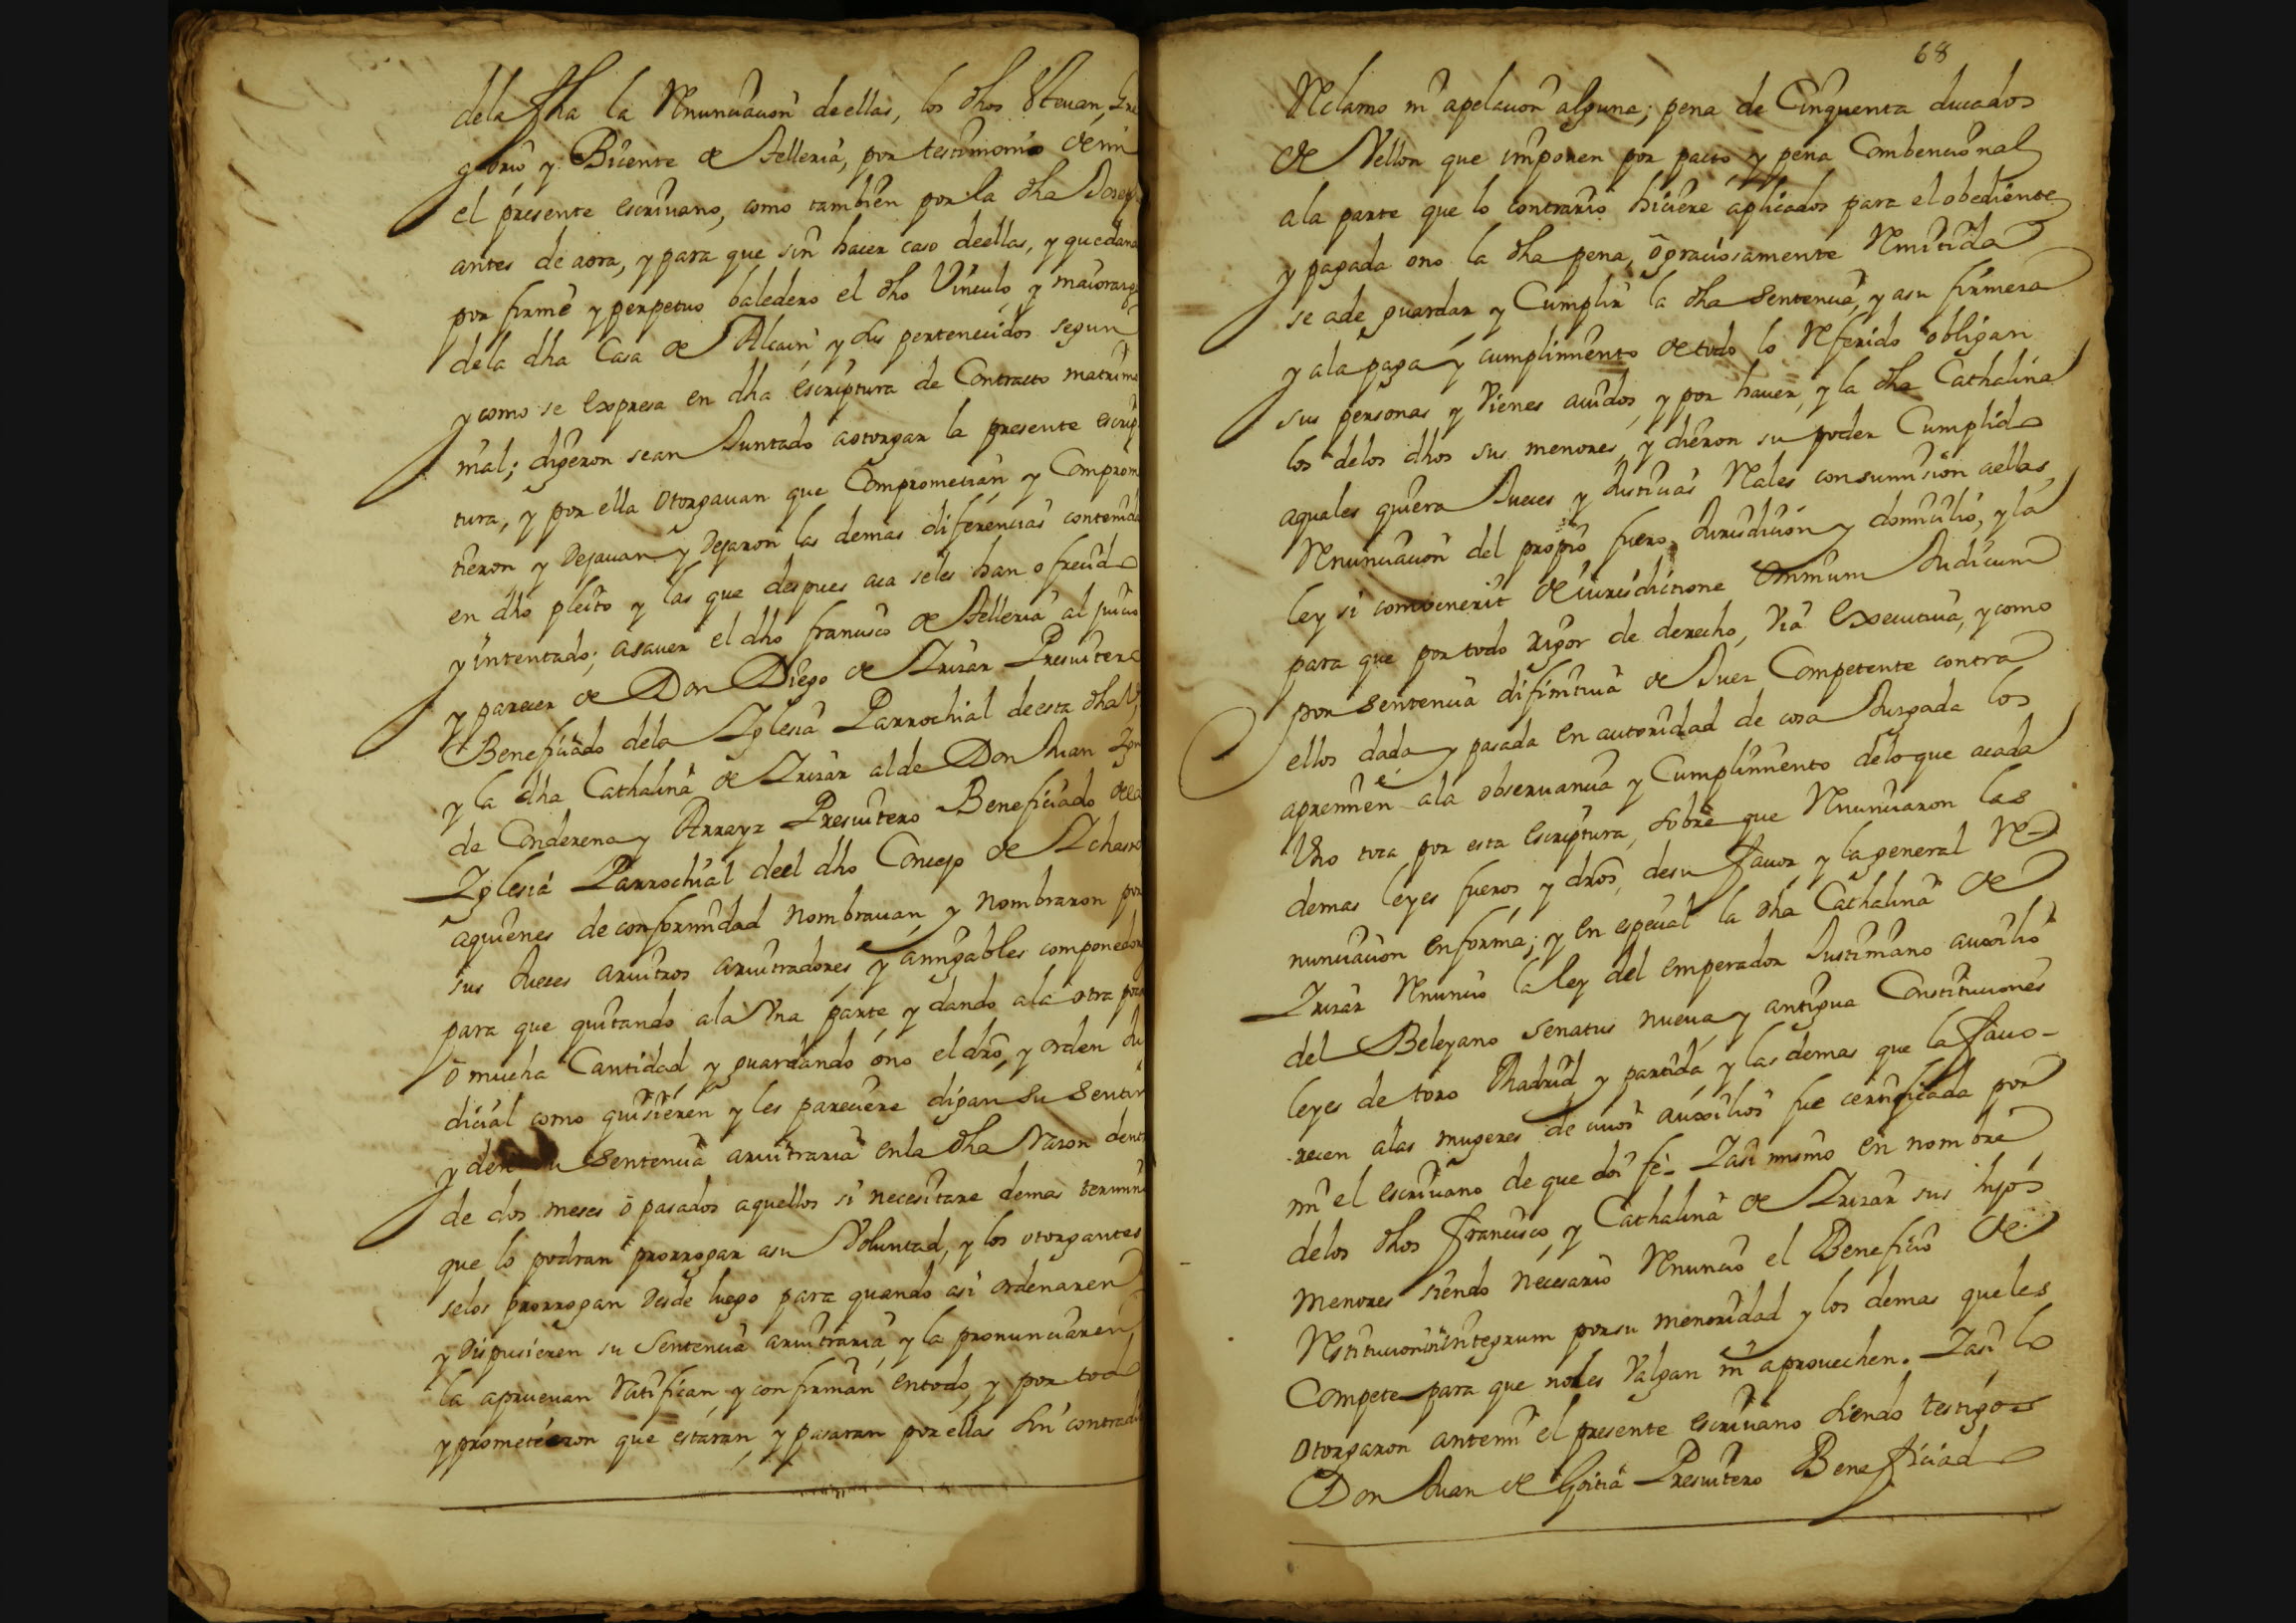 dela dha la Renunciacion deellas, los dhos Steuan, Gre
gorio y Bicente de Telleria, por testimonio de mi
el presente escriuano, como tambien por la dha Josepha
antes de aora, y para que sin hacer caso deellas, y quedand
por firme y perpetuo baledero el dho Vinculo y maiorazg
dela dha Casa de Alcain y sus pertenecidos segun
y como se expresa en dha escriptura de Contracto matrimo
nial; digeron sean Juntado aotorgar la presente escrip
tura, y por ella otorgauan que Comprometian y Comprom
tieron y Dejauan y Dejaron las demas diferencias contenida
en dho pleito y las que despues aca seles han ofrecido
y intentado; asauer el dho francisco de Telleria al juicio
y parecer de Don Diego de Irizar Presuitero
Beneficiado dela Iglesia Parrochial deesta dha V,
y la dha Cathalina de Irizar alde Don Juan Ign
de Conderena y Arrayz Presuitero Beneficiado dela
Iglesia Parrochial deel dho Concejo de Ichasso
aquienes de conformidad nombrauan, y nombraron por
sus Jueces aruitros aruitradores, y amigables componedor
para que quitando ala Vna parte y dando ala otra poca
o mucha Cantidad y guardando ono el dro, y orden Ju
dicial como quisieren y les pareciere digan su sentir
y den su sentencia aruitraria enla dha Razon dentr
de dos meses o pasados aquellos si necesitare demas termin
que lo podran prorrogar asu Voluntad, y los otorgantes
selos prorrogan Desde luego para quando asi ordenaren
y Dispusieren su Sentencia aruitraria y la pronunciaren
la aprueuan Ratifican y confirman entodo y por todo
y prometieron que estaran y pasaran por ellas sin contradi
68
Reclamo ni apelacion alguna; pena de Cinquenta ducados
de Vellon que imponen por pacto y pena Combencional
ala parte que lo contrario hiciere aplicados para el obediente
y pagada ono la dha pena, o graciosamente Remitida
se ade guardar y Cumplir la dha sentencia, y asu firmeza
y ala paga y cumplimiento detodo lo Referido obligan
sus personas y Vienes auidos, y por hauer, y la dha Cathalina
los delos dhos sus menores, y dieron su poder Cumplido
aquales quiera Jueces y Justicias Reales consumision aellas,
Renunciacion del propio fuero, Jurisdicion y domicilio, y la
ley si combenerit de iurisdictione omnium Judicum
para que por todo rigor de derecho, via executiua, y como
por sentencia difinitiua de Juez Competente contra
ellos dada y pasada en autoridad de cosa Juzgada los
apremien ala obseruancia y Cumplimiento delo que acada
Vno toca por esta escriptura, sobre que Renunciaron las
demas leyes fueros y dros, desu fauor y la general Re
nunciacion enforma; y en especial la dha Cathalina de
Irizar Renuncio la ley del emperador Justiniano auxilio
del Beleyano senatus nueua y antigua Constituciones
leyes de toro Madrid y partida y las demas que la fauo-
recen alas mugeres de cuios auxilios fue certificada por
mi el escriuano de que doi fe. Iasi mismo en nombre
delos dhos francisco, y Cathalina de Irizar sus hijos
Menores siendo necesario Renuncio el Beneficio de
Restitucion in integrum por su menoridad y los demas queles
Compete para que noles Valgan ni aprouechen. Iasi lo
otorgaron antemi el presente escriuano siendo testigos
Don Juan de Goitia Presuitero Beneficiado